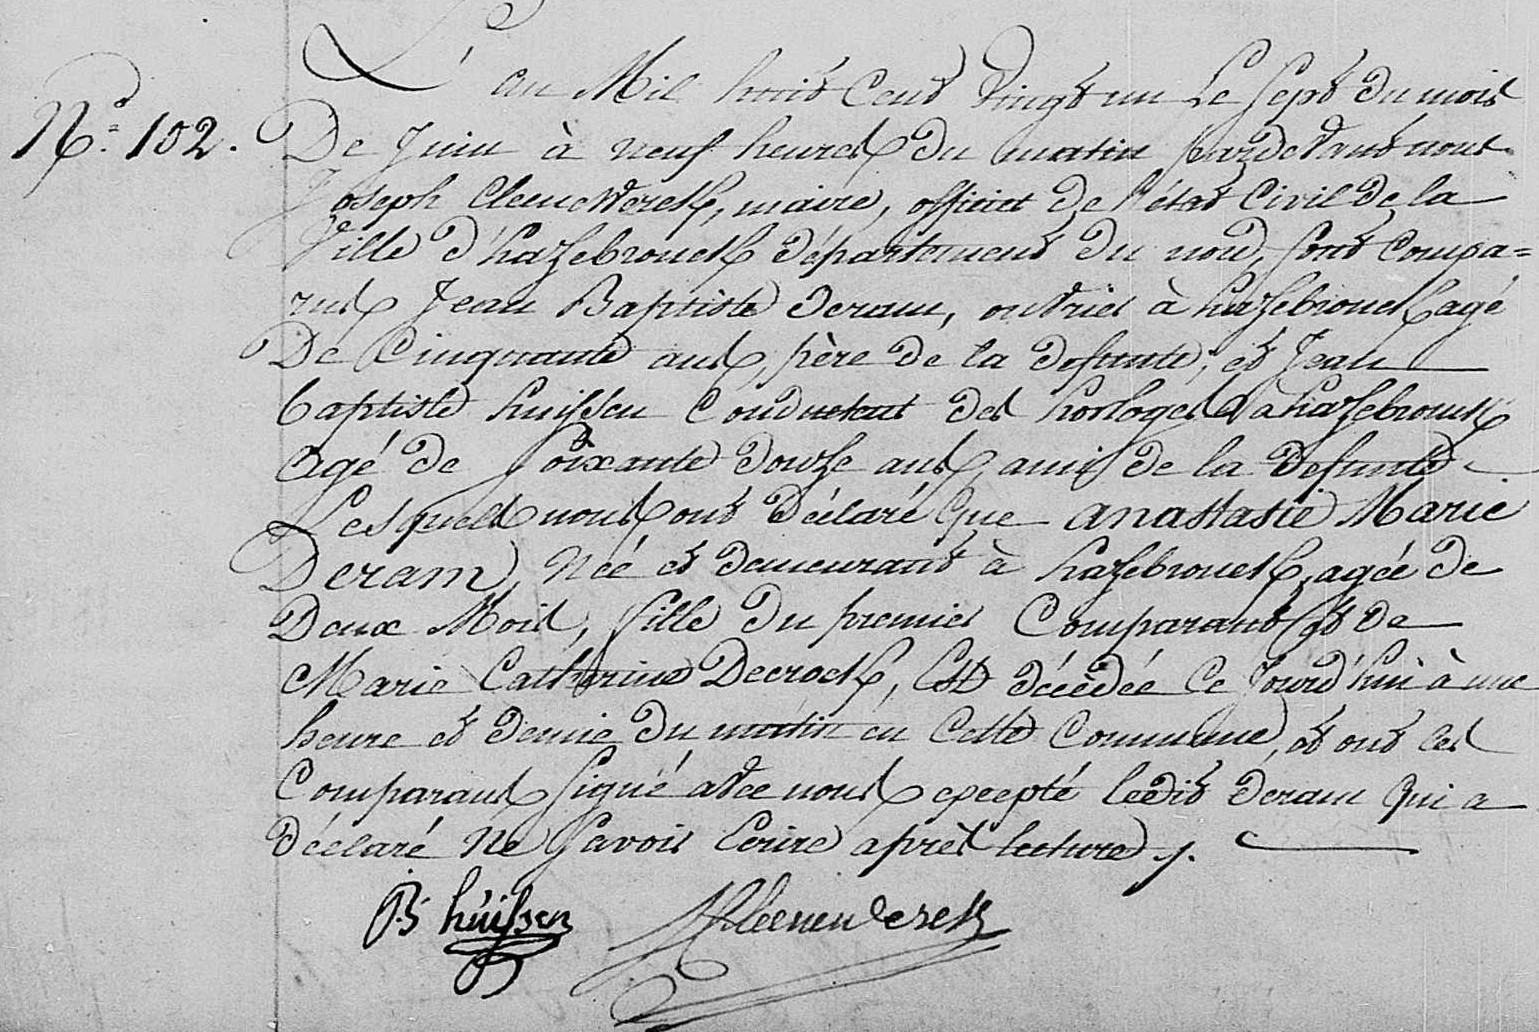 L'an Mil huit Cent vingt un Le Sept du mois
N.º 102. De Juin à neuf heures du matin pardevant nous
Joseph Cleenewerck, maire, officier de l'état Civil de la
Ville d'hazebrouck département du nord, sont compa=
rus Jean Baptiste Deram, ouvrier à hazebrouck agé
De Cinquante ans, père de la defunte, et Jean
baptiste huissen Conducteur des horloges à hazebrouck
agé de Soixante douze ans ami de la Defunte
Lesquels nous ont déclaré que anastasie Marie
Deram, née et demeurant à hazebrouck, agée de
Deux Mois, fille du premier Comparant et de
Marie Catherine Decrock, Est décédée Ce Jourd'hui à une
heure et demie du matin en Cette Commune, et ont les
Comparans signé avec nous excepté ledit Deram qui a
déclaré ne savoir Ecrire après lecture ./.
JB huissen Cleenewerck